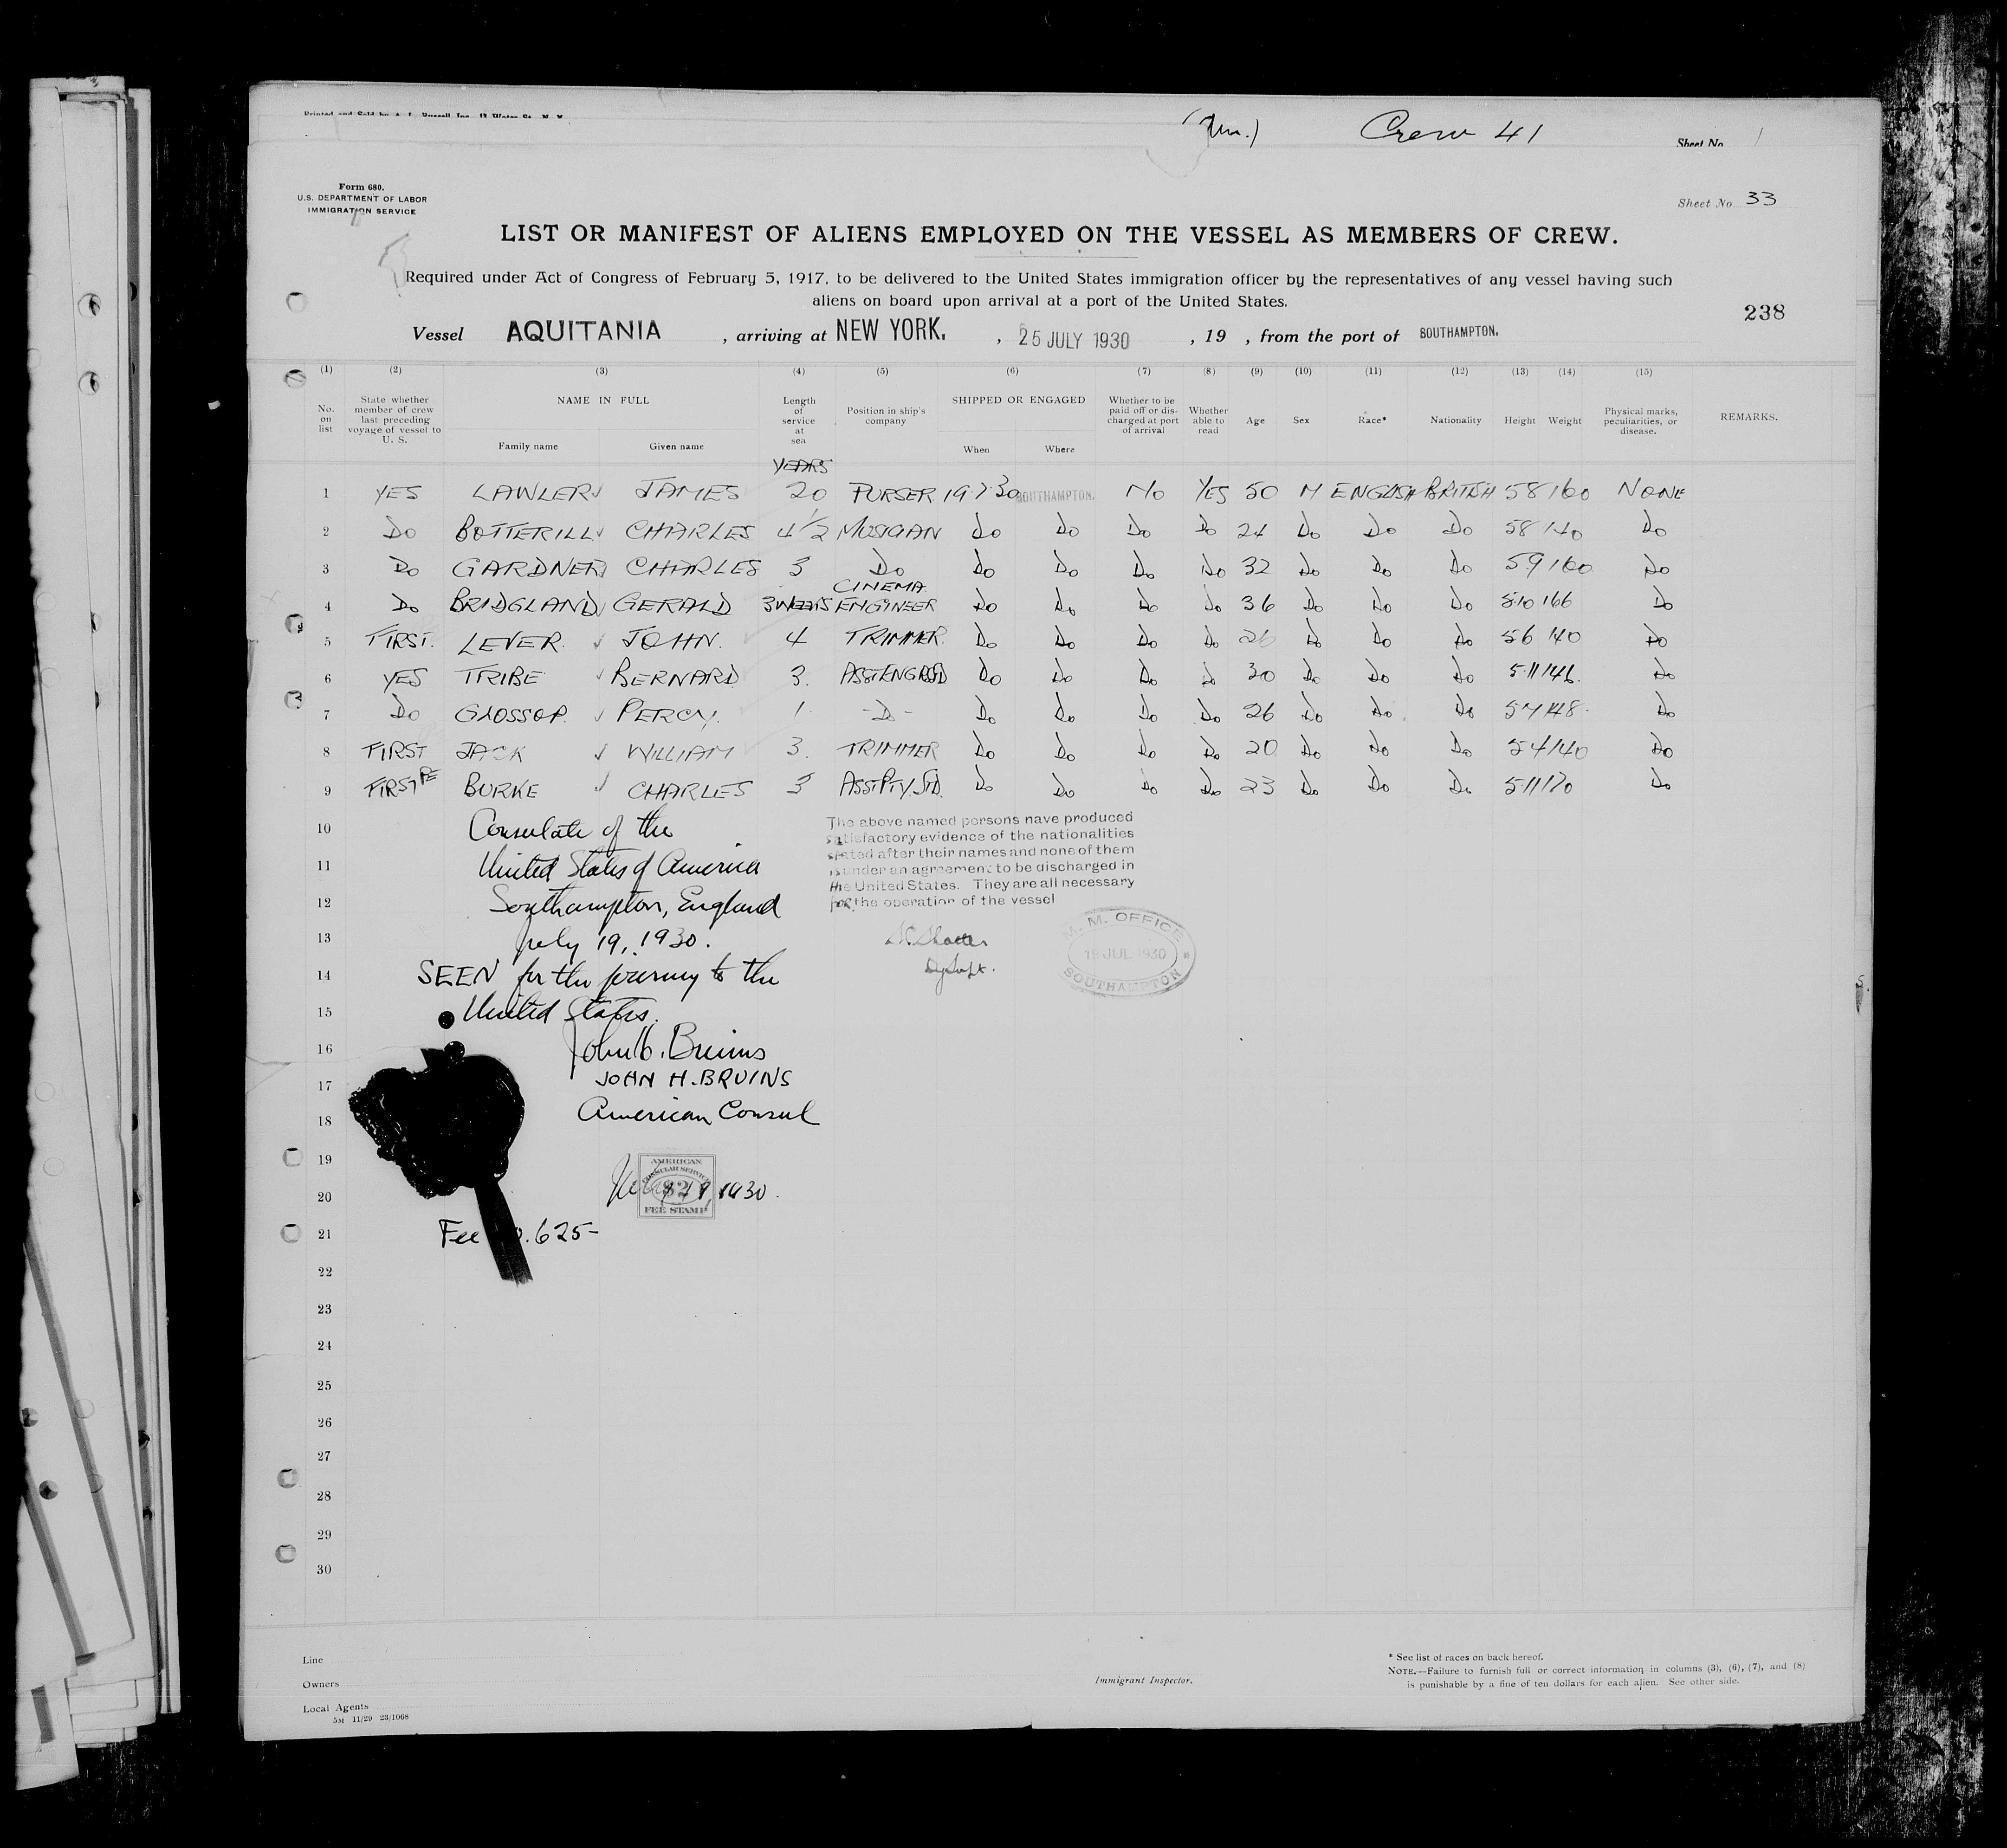 Printed and Sold by A. L. Russell, Inc., 12 Water St., N. Y.
Crew 41
Sheet No. 1
Form 680.
U.S. DEPARTMENT OF LABOR
IMMIGRATION SERVICE
Sheet No. 33
LIST OR MANIFEST OF ALIENS EMPLOYED ON THE VESSEL AS MEMBERS OF CREW.
Required under Act of Congress of February 5, 1917, to be delivered to the United States immigration officer by the representatives of any vessel having such
aliens on board upon arrival at a port of the United States.
238
Vessel AQUITANIA , arriving at NEW YORK. , 25 JULY 1930 , 19 , from the port of SOUTHAMPTON.
(1) (2) (3) (4) (5) (6) (7) (8) (9) (10) (11) (12) (13) (14) (15)
No. on list
State whether member of crew last preceding voyage of vessel to U. S.
NAME IN FULL
Family name Given name
Length of service at sea
Position in ship's company
SHIPPED OR ENGAGED
When Where
Whether to be paid off or discharged at port of arrival
Whether able to read
Age Sex Race* Nationality Height Weight
Physical marks, peculiarities, or disease.
REMARKS.
YEARS
1 YES LAWLER JAMES 20 PURSER 19.7.30 SOUTHAMPTON. No YES 50 M ENGLISH BRITISH 58 160 NONE
2 Do BOTTERILL CHARLES 4 1/2 MUSICIAN Do Do Do Do 24 Do Do Do 58 140 Do
3 Do GARDNER CHARLES 3 Do Do Do Do Do 32 Do Do Do 59 160 Do
CINEMA
4 Do BRIDGLAND GERALD 3 WEEKS ENGINEER Do Do Do Do 36 Do Do Do 510 166 Do
5 FIRST. LEVER. JOHN. 4 TRIMMER. Do Do Do Do 26 Do Do Do 56 140 Do
6 YES TRIBE BERNARD 3. Do Do Do Do 30 Do Do Do 5.11 146. Do
7 Do GLOSSOP. PERCY. 1 -D- Do Do Do Do 26 Do Do Do 57 148. Do
8 FIRST JACK WILLIAM 3. TRIMMER Do Do Do Do 20 Do Do Do 54 140 Do
9 FIRST RE BURKE CHARLES 3 ASST PTY. STD. Do Do Do Do 23 Do Do Do 5.11 170 Do
10 Consulate of the
11 United States of America
12 Southampton, England
13 July 19, 1930.
14 SEEN for the journey to the
15 United States.
16 John H. Bruins
17 JOHN H. BRUINS
18 American Consul
The above named persons have produced
satisfactory evidence of the nationalities
stated after their names and none of them
is under an agreement to be discharged in
the United States. They are all necessary
for the operation of the vessel
Dy Supt.
M. M. OFFICE
19 JUL 1930
SOUTHAMPTON
19
AMERICAN
CONSULAR SERVICE
$2
FEE STAMP
20 July 19, 1930.
21 Fee .625-
22
23
24
25
26
27
28
29
30
Line
Owners
Local Agents
5M 11/29 23/1068
Immigrant Inspector.
* See list of races on back hereof.
NOTE.—Failure to furnish full or correct information in columns (3), (6), (7), and (8)
is punishable by a fine of ten dollars for each alien. See other side.